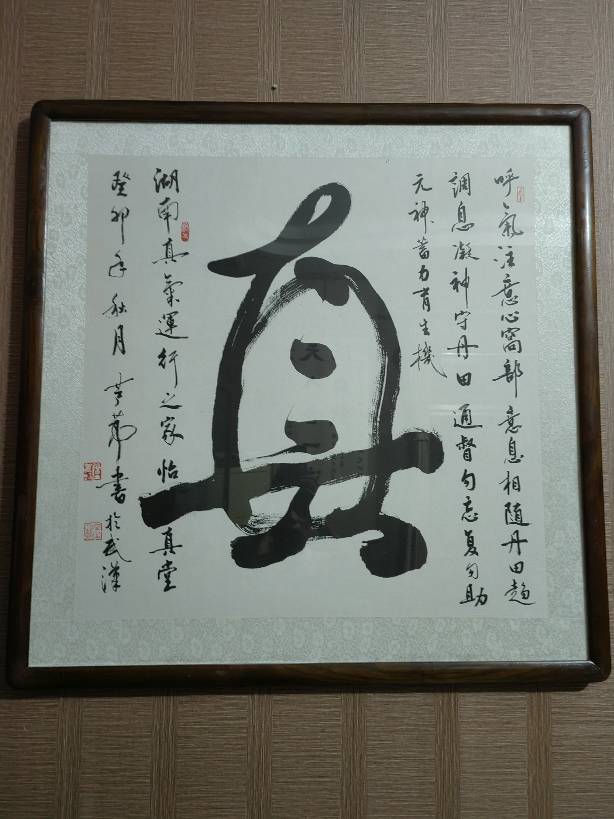 呼氣注意心窩部 意息相随丹田趨
調息凝神守丹田 通督勿忘复勿助
元神蓄力育生機
真
湖南真氣運行之家 怡真堂
癸卯年秋月 書於武漢